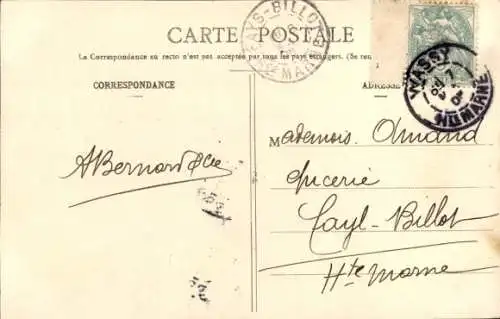 CARTE POSTALE
La Correspondance au recto n'est pas acceptée par tous les pays étrangers. (Se ren
CORRESPONDANCE
ADRESSE
FAYS-BILLOT
Hte MARNE
WASSY
Hte MARNE
ABernard & Cie
Mademois. Amand
épicerie
Fayl-Billot
Hte Marne